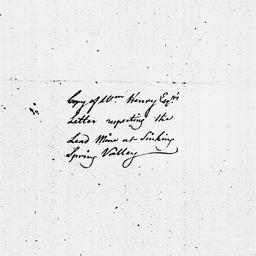 Copy of Wm Henry Esqrs
Letter respecting the
Lead Mine at Sinking
Spring Valley